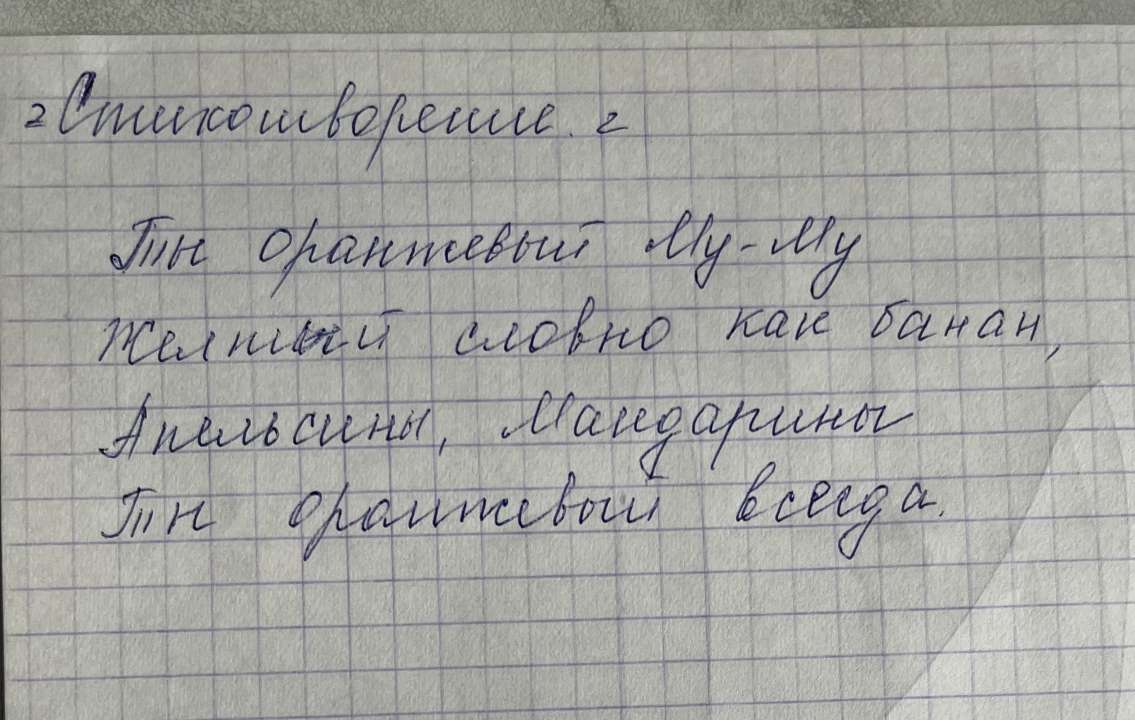 ~ Стихотворение. ~
Ты оранжевый Му-Му
Желтый словно как банан,
Апельсины, Мандарины
Ты оранжевый всегда.